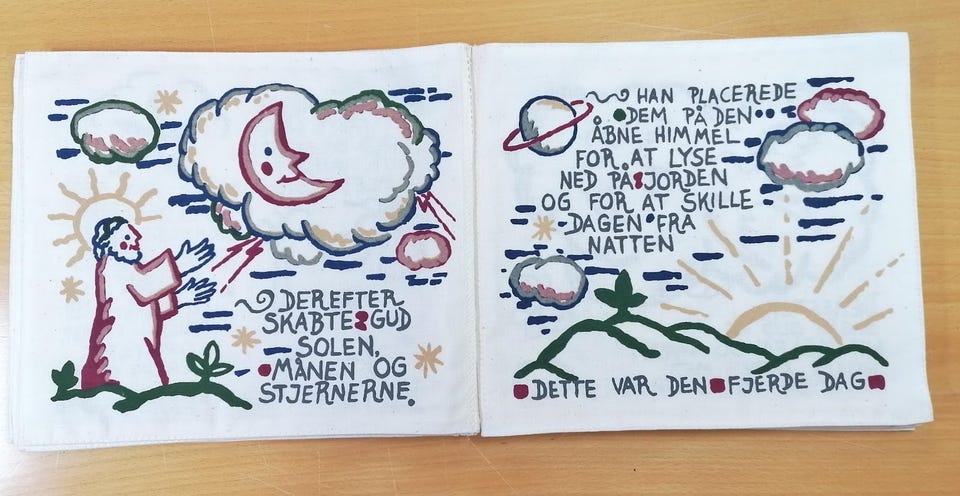 DEREFTER
SKABTE GUD
SOLEN,
MÅNEN OG
STJERNERNE.
HAN PLACEREDE
DEM PÅ DEN
ÅBNE HIMMEL
FOR AT LYSE
NED PÅ JORDEN
OG FOR AT SKILLE
DAGEN FRA
NATTEN
DETTE VAR DEN FJERDE DAG